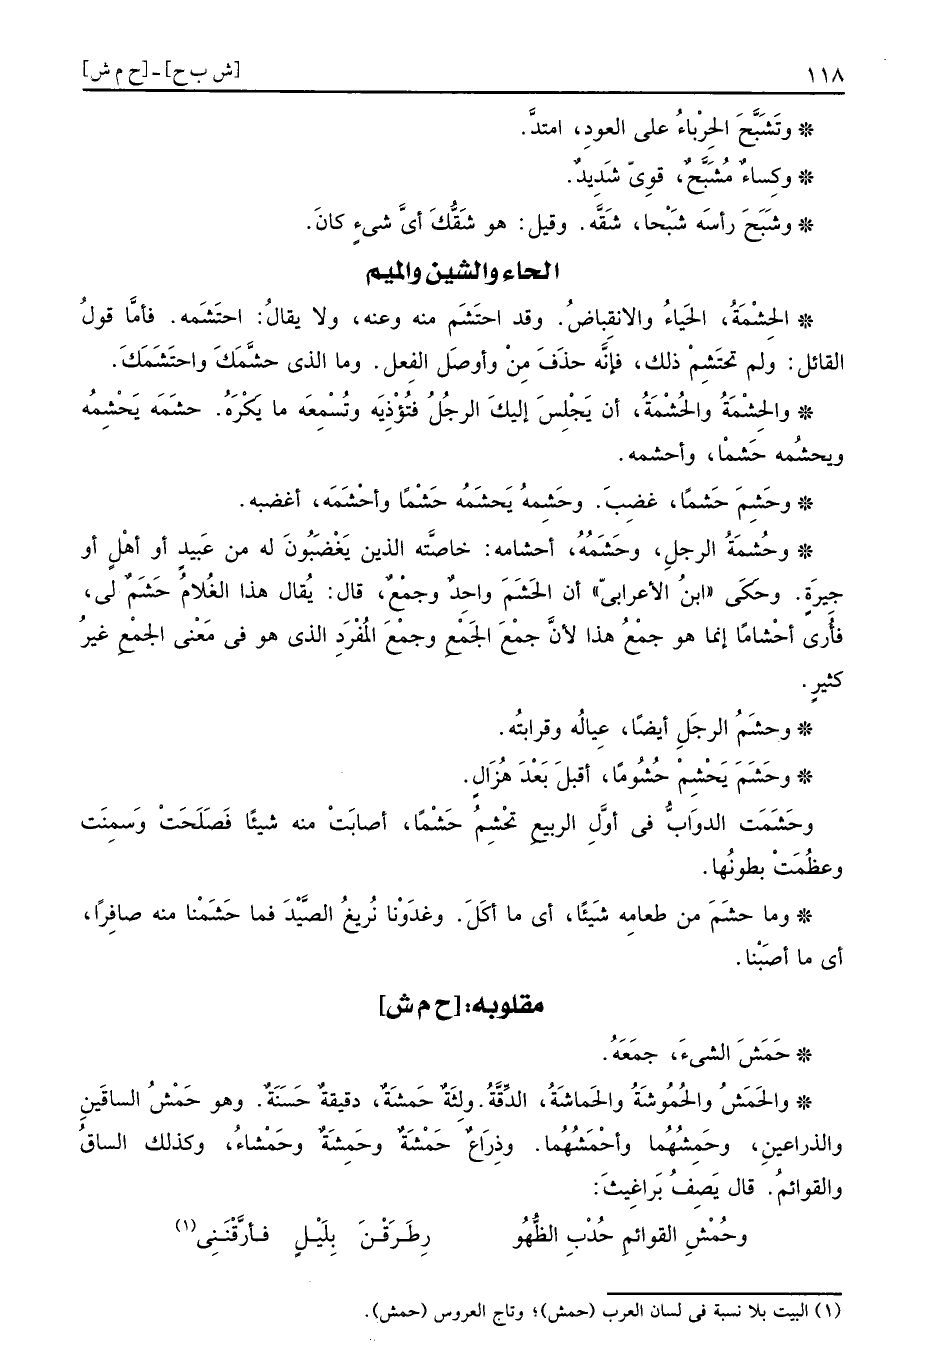 ١١٨
[ش ب ح] - [ح م ش]
* وتَشَبَّحَ الحِرْباءُ على العودِ، امتدَّ.
* وكِساءٌ مُشَبَّحٌ، قوىّ شَدِيدٌ.
* وشَبَحَ رأسَه شَبْحا، شَقَّه. وقيل: هو شَقُّكَ أىَّ شىءٍ كانَ.
الحاء والشين والميم
* الحِشْمَةُ، الحَياءُ والانقِباضُ. وقد احتَشَم منه وعنه، ولا يقالُ: احتَشَمه. فأمَّا قولُ
القائل: ولم تحتَشِمْ ذلك، فإنَّه حذَفَ مِنْ وأوصَل الفعل. وما الذى حشَّمَكَ واحتَشَمَكَ.
* والحِشْمَةُ والحُشْمَةُ، أن يَجْلِسَ إليكَ الرجلُ فتُؤْذِيَه وتُسْمِعَه ما يَكْرَهُ. حشَمَه يَحْشِمُه
ويحشُمه حَشما، وأحشمه.
* وحَشِمَ حَشمًا، غضبَ. وحَشِمهُ يَحشمُه حَشْمًا وأحْشَمَه، أغضبه.
* وحُشمَةُ الرجلِ، وحَشَمُهُ، أحشامه: خاصَّته الذين يَغْضَبُونَ له من عَبيدٍ أو أهْلٍ أو
جيرَةِ. وحكَى «ابنُ الأعرابىّ» أن الحَشَمَ واحِدٌ وجمْعٌ، قال: يُقال هذا الغُلامُ حَشَمٌ لى،
فأُرى أحْشامًا إنما هو جمْعُ هذا لأنَّ جمْعَ الجَمْعِ وجمْعَ المُفْرَدِ الذى هو فى مَعْنى الجمْعِ غيرُ
كثيرٍ.
* وحشَمُ الرجَلِ أيضًا، عيالُه وقرابتُه.
* وحَشَمَ يَحْشِمْ حُشُومًا، أقبلَ بَعْدَ هُزَالٍ.
وحَشَمَت الدوَابُّ فى أوَّلِ الربيعِ تحْشِمُ حَشْمًا، أصابَتْ منه شيئًا فَصَلَحَتْ وَسمِنَت
وعظُمَتْ بطونُها.
* وما حشَمَ من طعامِه شَيئًا، أى ما أكَلَ. وغدَوْنا نُريغُ الصَّيْدَ فما حَشَمْنا منه صافِرًا،
أى ما أصَبْنا.
مقلوبه: [ح م ش]
* حَمَشَ الشىءَ، جمَعَهُ.
* والحَمَشُ والحُمُوشَةُ والحَماشَةُ، الدِّقَّةُ. ولِثَةٌ حَمشةٌ، دقيقةٌ حَسَنَةٌ. وهو حَمْشُ الساقَينِ
والذراعين، وحَمِشُهُما وأحْمَشُهُما. وذِرَاعٌ حَمْشَةٌ وحَمِشَةٌ وحَمْشاءُ، وكذلك الساقُ
والقوائمُ. قال يَصِفُ بَراغيثَ:
وحُمْشِ القوائمِ حُدْبِ الظُّهُو رِطَرَقْنَ بِلَيْلٍ فأرَّقْنَنِى(١)
(١) البيت بلا نسبة فى لسان العرب (حمش)؛ وتاج العروس (حمش).